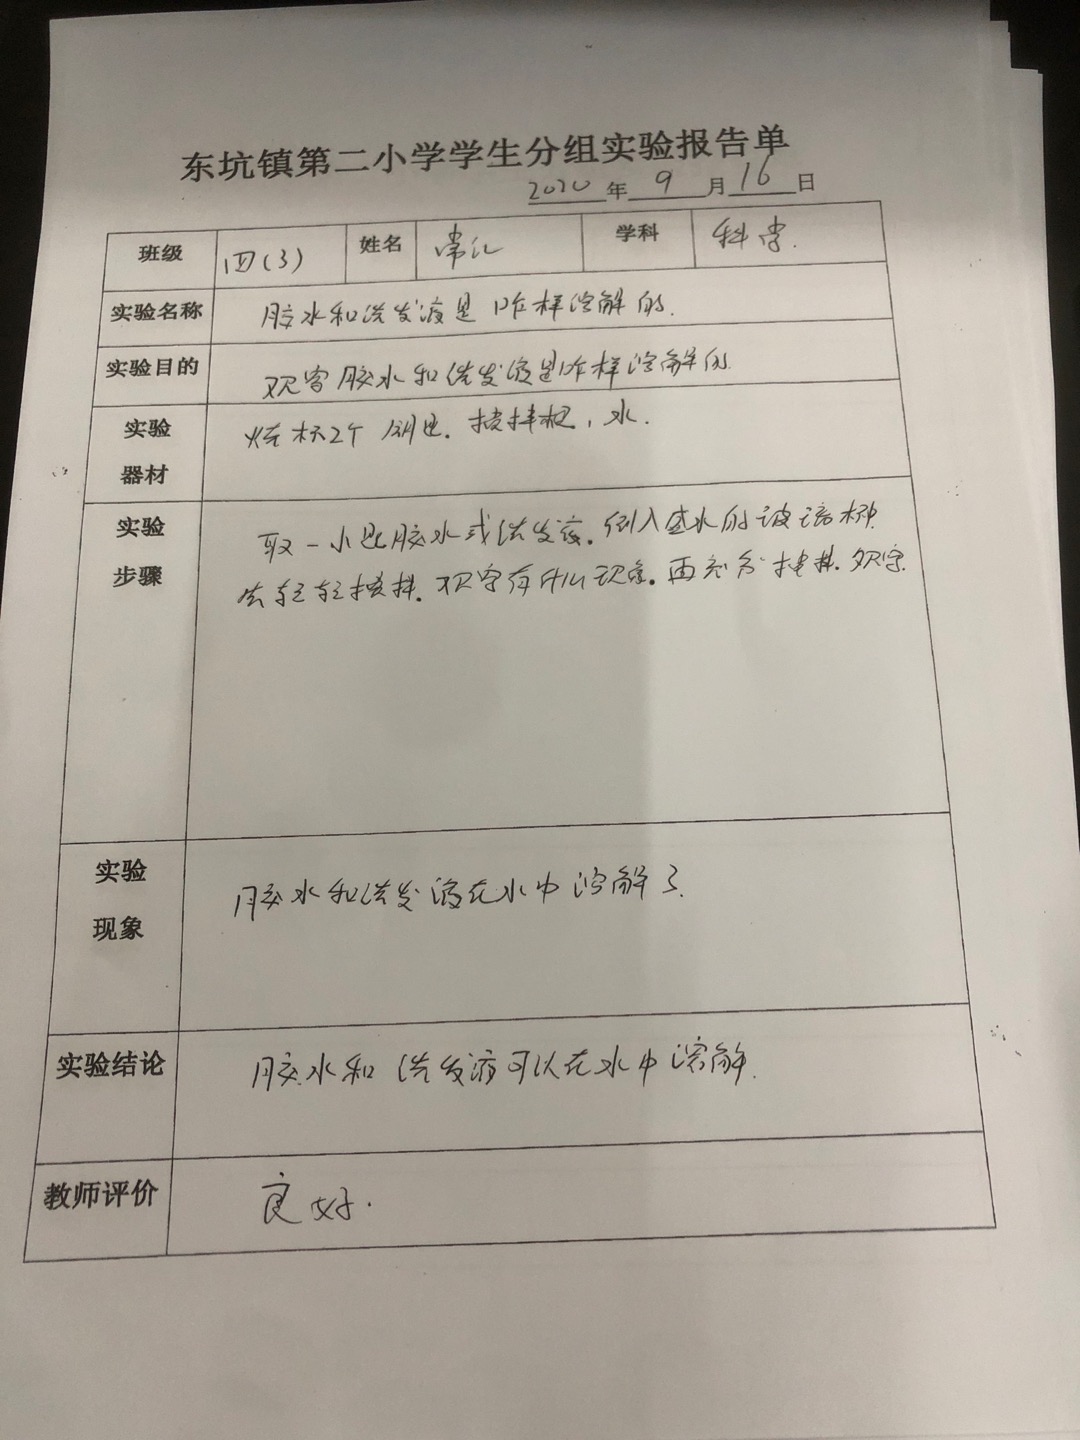 东坑镇第二小学学生分组实验报告单
2020年9月16日
班级 四(3) 姓名 常江 学科 科学.
实验名称 胶水和洗发液是咋样溶解的.
实验目的 观察胶水和洗发液是咋样溶解的.
实验 烧杯2个 钥匙. 搅拌棍, 水.
器材
实验 取一小匙胶水或洗发液. 倒入盛水的玻璃杯中.
步骤 去轻轻搅拌. 观察有什么现象. 再充分搅拌. 观察.
实验 胶水和洗发液在水中溶解了.
现象
实验结论 胶水和洗发液可以在水中溶解.
教师评价 良好.